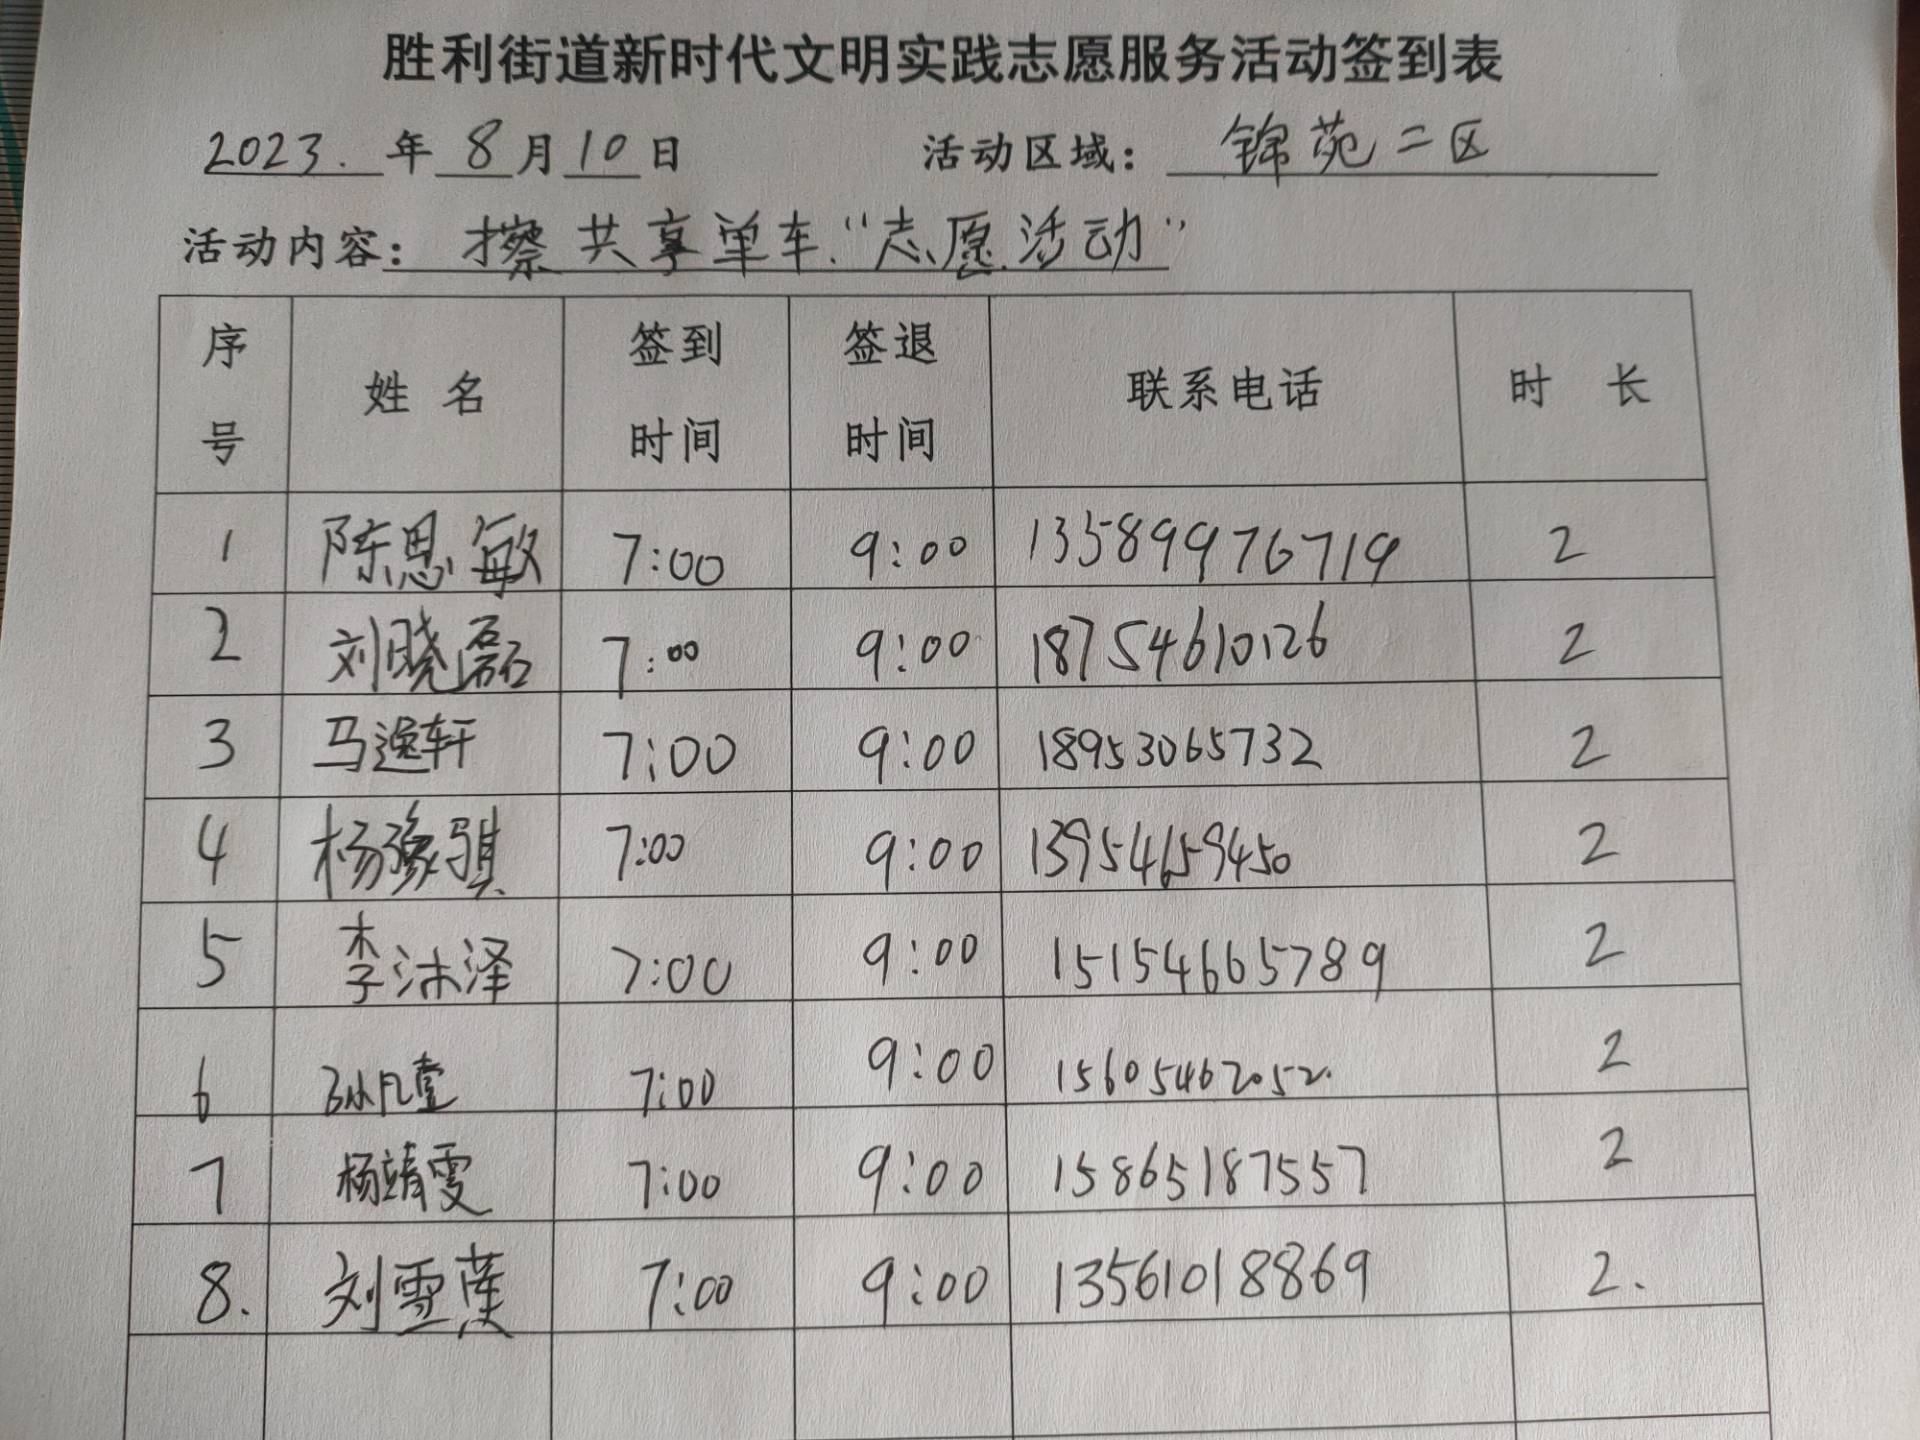 胜利街道新时代文明实践志愿服务活动签到表
2023. 年 8 月 10 日 活动区域： 锦苑二区
活动内容： 擦共享单车.“志愿活动”
序号 姓名 签到时间 签退时间 联系电话 时长
1 陈思敏 7:00 9:00 13589976719 2
2 刘晓磊 7:00 9:00 18754610126 2
3 马逸轩 7:00 9:00 18953065732 2
4 杨豫骐 7:00 9:00 13954659450 2
5 李沛泽 7:00 9:00 15154665789 2
6 孙凡壹 7:00 9:00 15605462052. 2
7 杨靖雯 7:00 9:00 15865187557 2
8. 刘雪莲 7:00 9:00 13561018869 2.